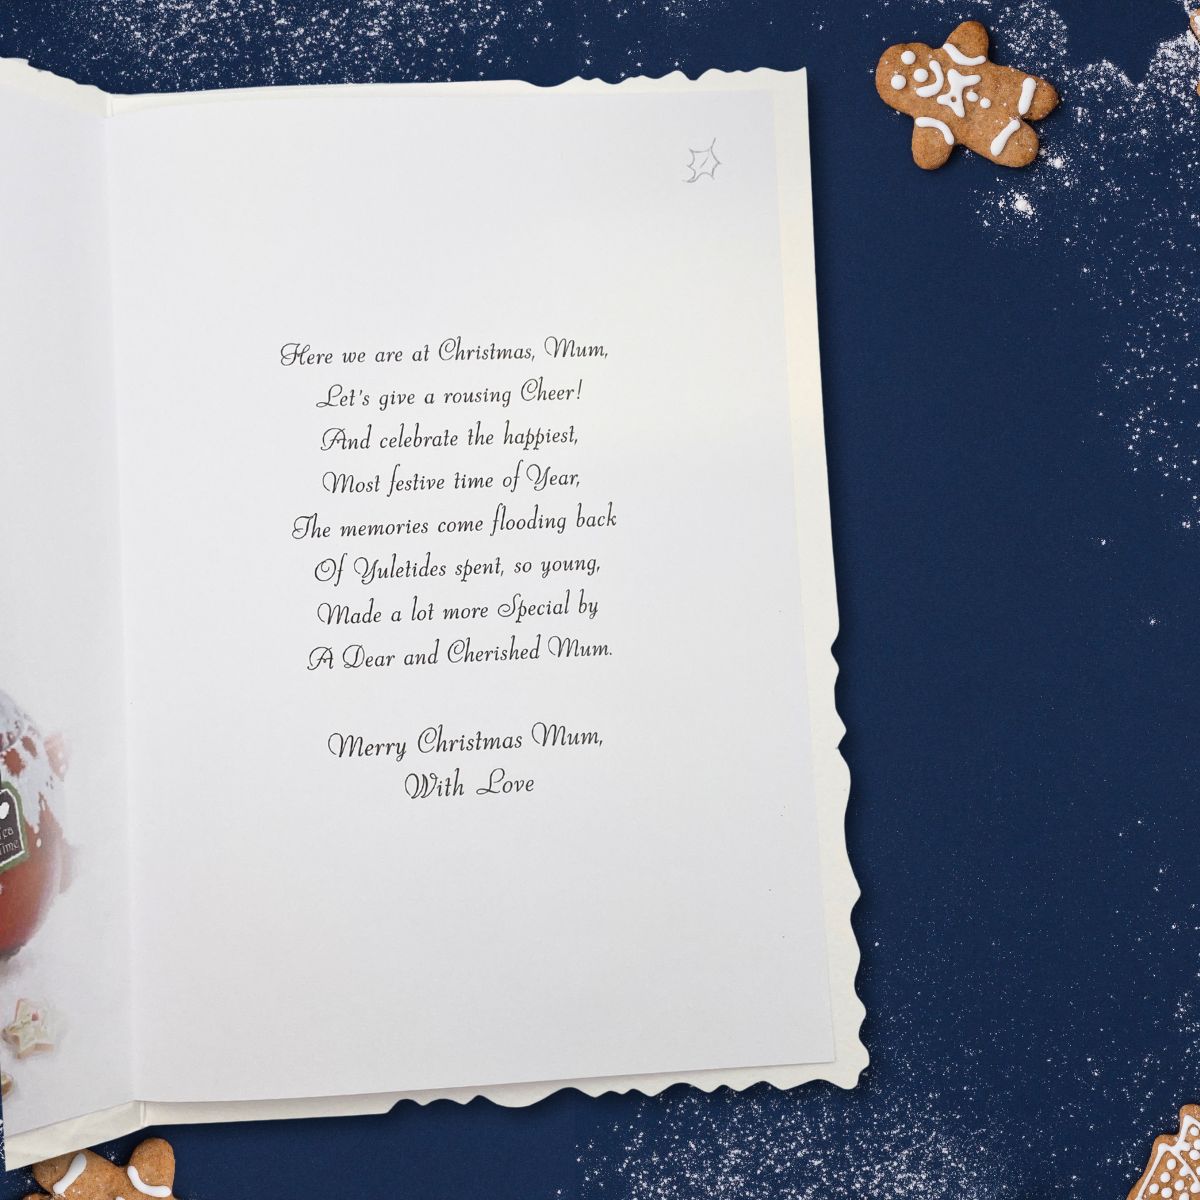 Here we are at Christmas, Mum,
Let's give a rousing Cheer!
And celebrate the happiest,
Most festive time of Year,
The memories come flooding back
Of Yuletides spent, so young,
Made a lot more Special by
A Dear and Cherished Mum.
Merry Christmas Mum,
With Love
Tea
Time